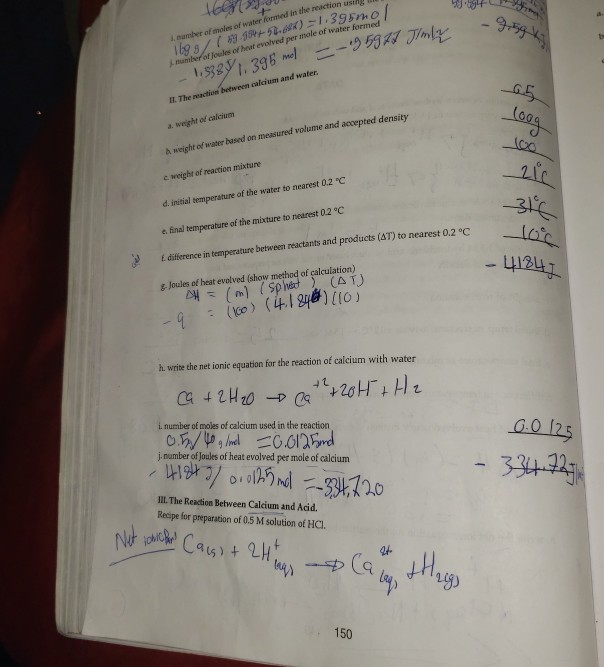 i. number of moles of water formed in the reaction using
= 1.395 mol
j. number of Joules of heat evolved per mole of water formed
II. The reaction between calcium and water.
a. weight of calcium 0.5
b. weight of water based on measured volume and accepted density 100g
c. weight of reaction mixture 100
d. initial temperature of the water to nearest 0.2 °C 21°C
e. final temperature of the mixture to nearest 0.2 °C 31°C
f. difference in temperature between reactants and products (ΔT) to nearest 0.2 °C 10°C
g. Joules of heat evolved (show method of calculation) - 4184 J
ΔH = (m) (sp heat) (ΔT)
-q = (100) (4.184) (10)
h. write the net ionic equation for the reaction of calcium with water
Ca + 2H2O → Ca+2 + 2OH- + H2
i. number of moles of calcium used in the reaction 0.0125
0.5/40 g/mol = 0.0125 mol
j. number of Joules of heat evolved per mole of calcium - 334.72 J/
- 4184 J / 0.0125 mol = -334,720
III. The Reaction Between Calcium and Acid.
Recipe for preparation of 0.5 M solution of HCl.
Net Ca(s) + 2H+(aq) → Ca2+(aq) + H2(g)
150